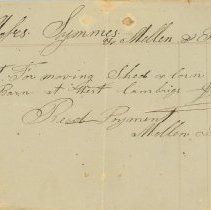 Symmes to Mellen &
For moving Shed & corn
Barn at West Cambrige
Recd Payment
Mellen &